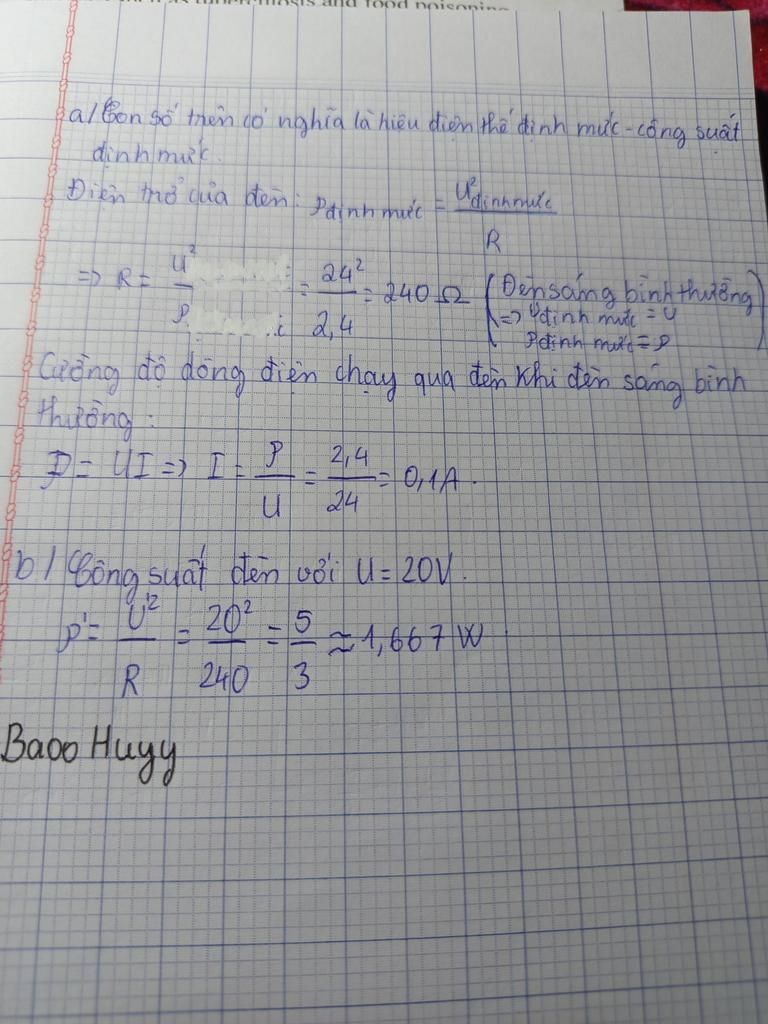 as tuberculosis and food poisoning
a/ Con số trên có nghĩa là hiệu điện thế định mức - công suất
định mức.
Điện trở của đèn: P định mức = U² định mức / R
=> R = U² / P = 24² / 2,4 = 240 Ω (Đèn sáng bình thường
=> U định mức = U
P định mức = P)
Cường độ dòng điện chạy qua đèn khi đèn sáng bình
thường:
P = UI => I = P / U = 2,4 / 24 = 0,1A.
b/ Công suất đèn với U = 20V.
P' = U'² / R = 20² / 240 = 5 / 3 ≈ 1,667 W.
Baoo Huyy